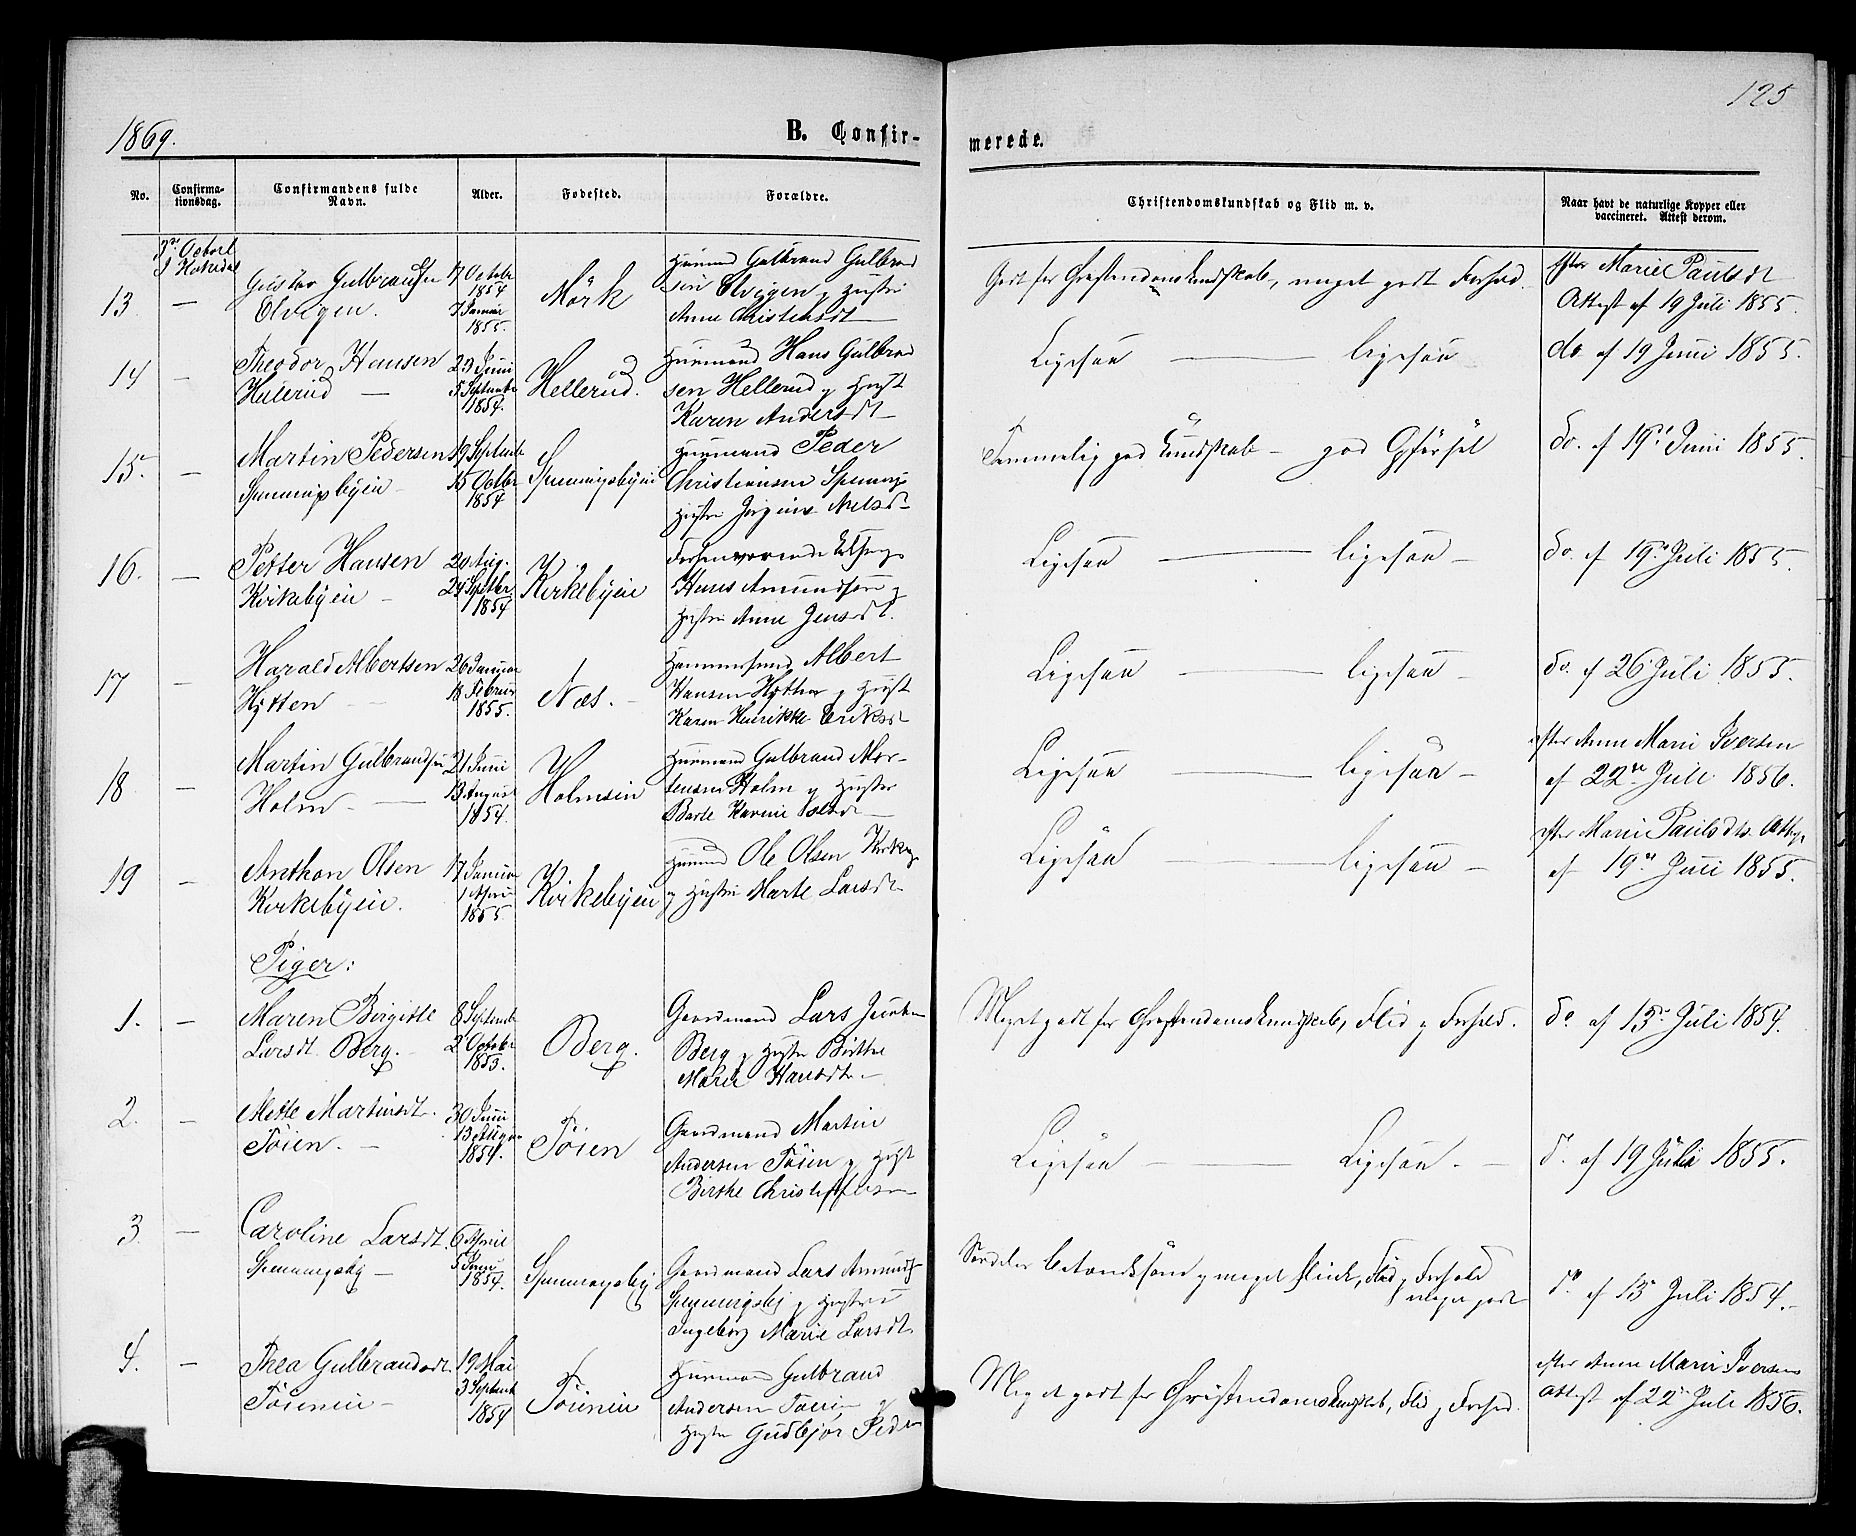 125
1869.
B. Confir-
merede.
No.
Confirma-
tionsdag.
Confirmandens fulde
Navn.
Alder.
Fødested.
Forældre.
Christendomskundskab og Flid m. v.
Naar havt de naturlige Kopper eller
vaccineret. Attest derom.
13
Gustav Gulbrandsen
Elvigen.
17 Octobr
1854
7 Januar
1855.
Mörk
Huusmand Gulbrand Gulbrand
sen Elvigen og Hustru
Anne Christensdt
Godt for Christendomskundskab, meget godt Forhold.
efter Marie Paulsdt
Attest af 19 Juli 1855.
14
Theodor Hansen
Hellerud
23 Juni
5 Septembr
1854.
Hellerud.
Huusmand Hans Gulbrand
sen Hellerud og Hust
Karen Andersdt
Ligesaa ligesaa
do. af 19 Juni 1855.
15.
Martin Pedersen
Spenningsbyen
19 Septembr
15 Octbr
1854
Spenningsbyen
Huusmand Peder
Christiansen Spennings
Hustru Jørgine Nielsd
Temmelig god Kundskab - god Opførsel
Do. af 19 Juni 1855.
16.
Petter Hansen
Kirkebyeie
20 Aug.
24 Septbr
1854
Kirkebyeie
Forhenværende
Hans Amundsen og
Hustru Anne Jensdt.
Ligesaa ligesaa
Do. af 19 Juli 1855.
17
Harald Albertsen
Hytten
26 Januar
18 Februar
1855.
Næs.
Hammersmed Albert
Hansen Hytten og Hust
Karen Henrikke Eriksdt
Ligesaa ligesaa
Do. af 26 Juli 1855.
18
Martin Gulbrandsen
Holm
21 Juni
13 August
1854.
Holmseie
Huusmand Gulbrand Mor-
tensen Holm og Hustru
Barte Karine Olsdt
Ligesaa ligesaa
efter Anne Marie Iversen
af 22 Juli 1856.
19
Anthon Olsen
Kirkebyeie.
17 Januar
1 April
1855.
Kirkebyeie
Huusmd Ole Olsen Kirkeby
og Hustru Marte Larsdt
Ligesaa ligesaa
efter Marie Paulsdts Attest
af 19 Juli 1855.
Piger:
1.
Maren Birgitte
Larsdt Berg.
8 Septembr
2 Octobr
1853.
Berg.
Gaardmand Lars Jacobsen
Berg og Hustru Birthe
Marie Hansdt
Meget godt for Christendomskundskab, Flid og Forhold.
Do af 13 Juli 1854.
2.
Mette Martinsdt.
Töien.
30 Juni
13 August
1854.
Töien
Gaardmand Martin
Andersen Töien og Hust
Birthe Christoffersen
Ligesaa Ligesaa.
Do af 19 Juli 1855.
3.
Caroline Larsdt.
Spenningsby
6 April
5 Juni
1854.
Spenningsby
Gaardmand Lars Amunds
Spenningsby og Hustru
Ingeborg Marie Larsdt
Særdeles betænksom og meget flink, Flid og Forhold
meget godt
Do af 13 Juli 1854.
4.
Thea Gulbrandsdt.
Töieneie
19 Mai
3 Septembr
1854
Töieneie
Huusmand Gulbrand
Andersen Töien og
Hustru Gudbjør Peder
Meget godt for Christendomskundskab, Flid og Forhold.
efter Anne Marie Iversens
Attest af 22 Juli 1856.